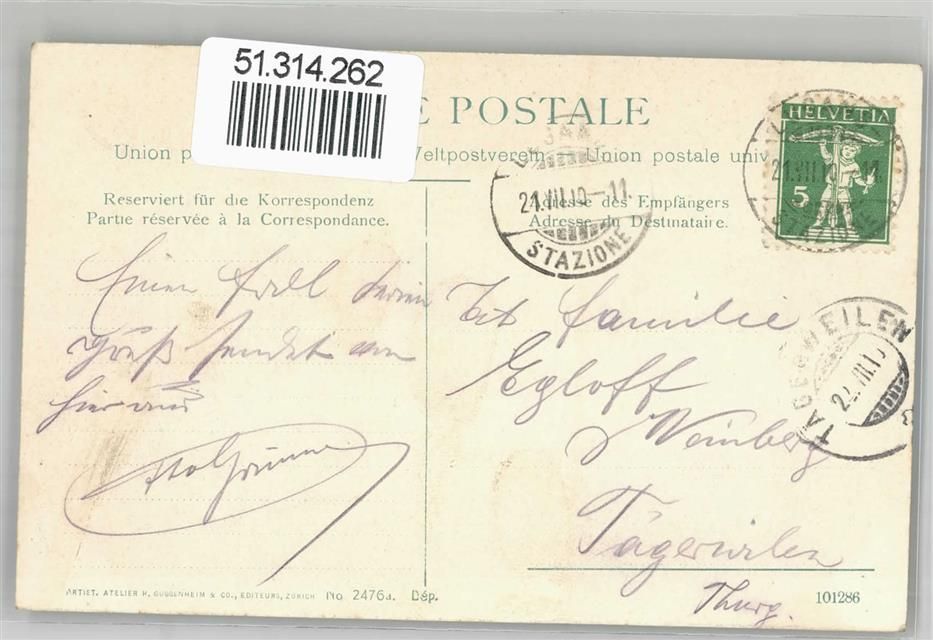 51.314.262
E POSTALE
Union p Weltpostverein Union postale univ
Reserviert für die Korrespondenz
Partie réservée à la Correspondance.
Adresse des Empfängers
Adresse du Destinataire.
HELVETIA
5
21.VII.10-11
STAZIONE
21.VII.10-11
STAZIONE
TAEGERWEILEN
22.VII.10
Einen
Gruß sendet von
hier aus
Familie
Egloff
z Weinberg
Tägerwilen
Thurg.
ARTIST. ATELIER H. GUGGENHEIM & CO., EDITEURS, ZÜRICH No 2476a. Dép.
101286